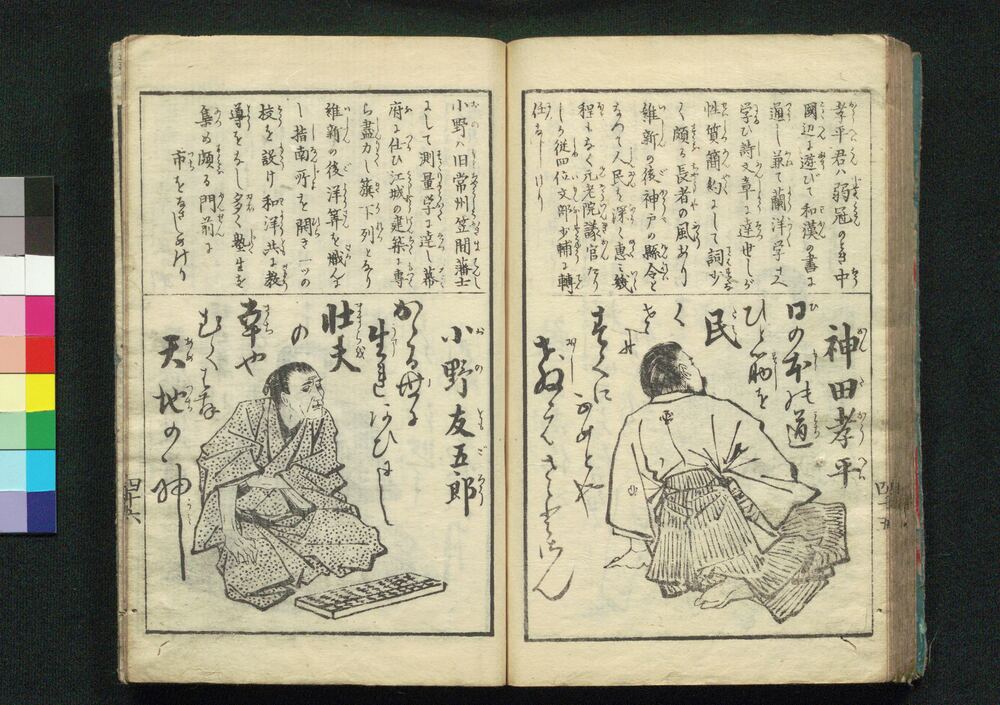 孝平君ハ弱冠のとき中
國辺に遊びて和漢の書に
通し兼て蘭洋学する
学び詩文章に達せしが
性質簡約にして詞少
く頗る長者の風あり
維新の後神戸の縣令と
なつて人民を深く惠ミ幾
程もなく元老院議官なり
しが従四位文部少輔に轉
任なしけり
神田孝平
日の本の道
ひと筋を
民
く
すぐに
四十五
小野ハ旧常州笠間藩士
にして測量学に達し幕
府に仕ひ江城の建築に専
ら盡力し旗下列となり
維新の後洋筭を職んよ
し指南所を開き一ツの
校を設け和洋共に教
導をなし多く塾生を
集め頗る門前に
市をなさしめけり
小野友五郎
かゝる毋に
生れあひにし
壮夫
の
幸や
天地の神
四十六